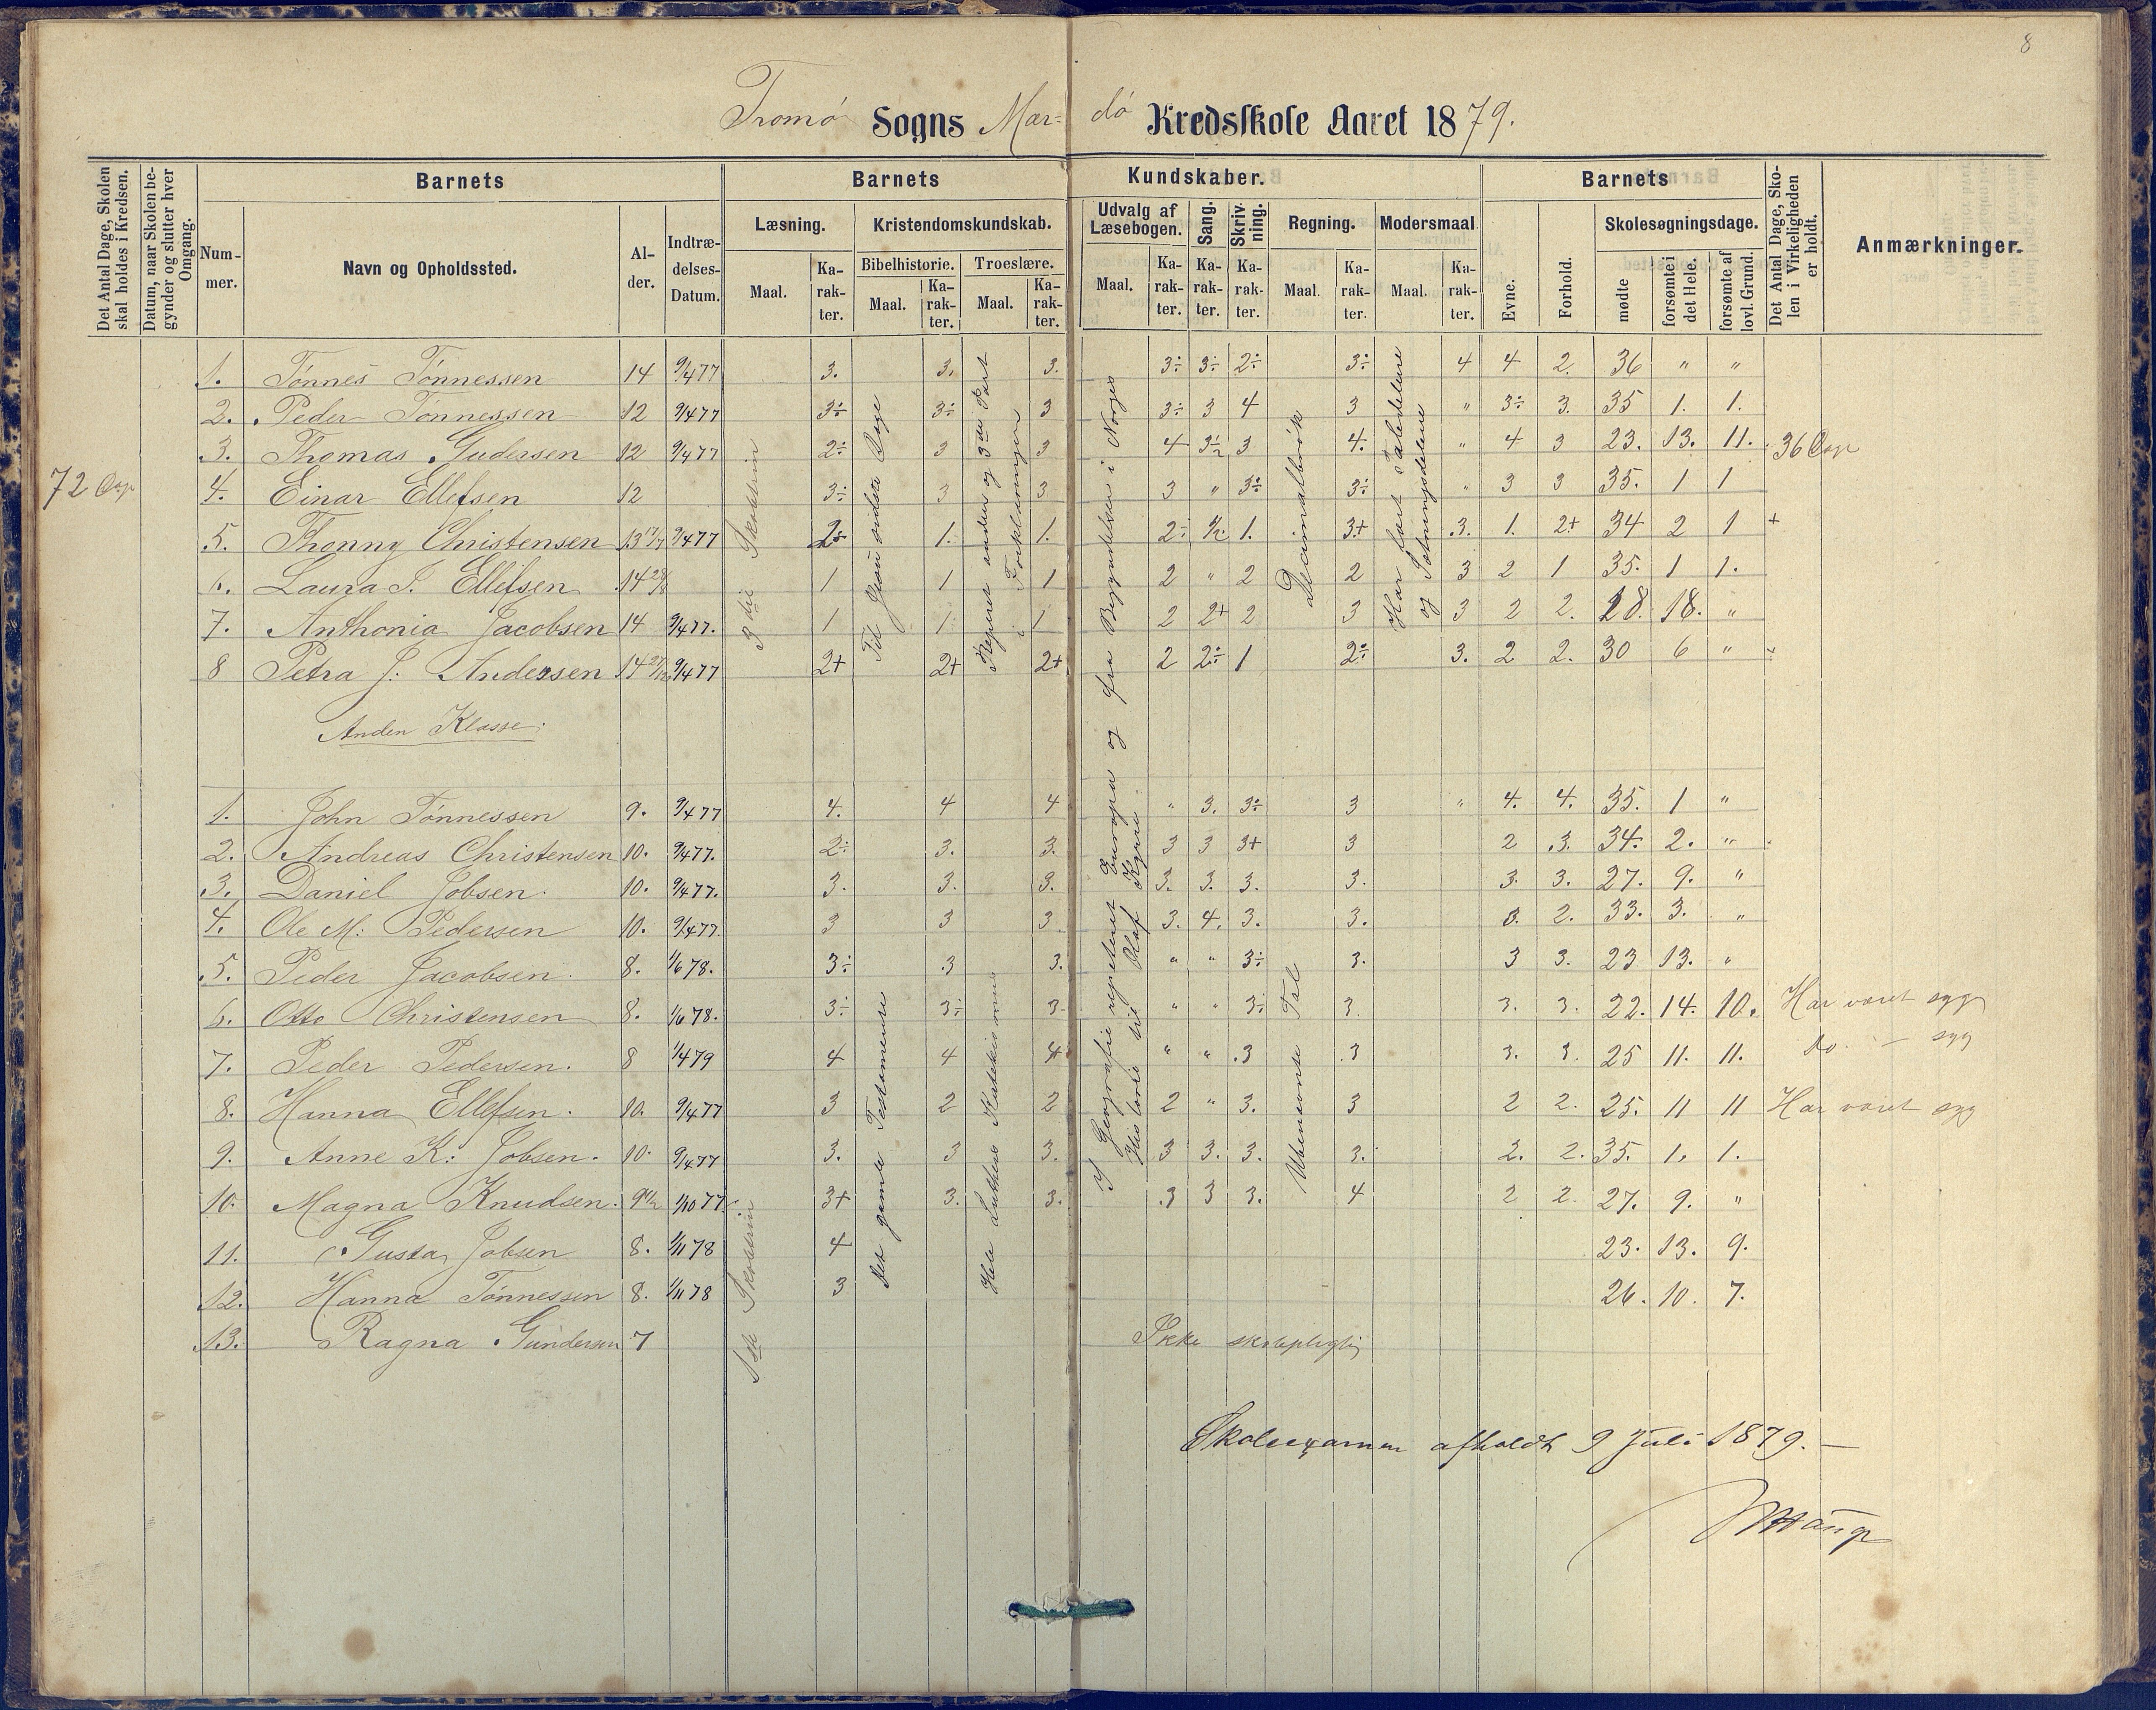 8
Tromö Sogns Mar- dö Kredsskole Aaret 1879.
Det Antal Dage, Skolen skal holdes i Kredsen.
Datum, naar Skolen begynder og slutter hver Omgang.
Barnets
Barnets Kundskaber.
Barnets
Det Antal Dage, Skolen i Virkeligheden er holdt.
Anmærkninger.
Nummer.
Navn og Opholdssted.
Alder.
Indtrædelses-Datum.
Læsning.
Kristendomskundskab.
Udvalg af Læsebogen.
Sang.
Skrivning.
Regning.
Modersmaal
Evne.
Forhold.
Skolesøgningsdage.
Bibelhistorie.
Troeslære.
Maal.
Karakter.
Maal.
Karakter.
Maal.
Karakter.
Maal.
Karakter.
Karakter.
Karakter.
Maal.
Karakter.
Maal.
Karakter.
mødte
forsømte i det Hele.
forsømte af lovl. Grund.
1. Tönnes Tönnessen 14 9/4 77 3. 3. 3. 3÷ 3÷ 2÷ 3÷ 4 4 2. 36 " "
2. Peder Tönnessen 12 9/4 77 3÷ 3÷ 3 3÷ 3 4 3 " 3÷ 3. 35 1. 1.
3. Thomas Gudersen 12 9/4 77 2÷ 3 3 4 3 4. " 4 3 23. 13. 11. 36 Dage
72 Dage
4. Einar Ellefsen 12 3÷ 3 3 3 " 3÷ 3÷ " 3 3 35. 1 1
5. Thonny Christensen 13 9/4 77 1. 1. 2÷ 1. 3+ 3. 1. 2+ 34 2 1 +
6. Laura J. Ellefsen 14 1 1 1 2 " 2 2 3 2 1 35. 1 1.
7. Anthonia Jacobsen 14 9/4 77. 1 1 1 2 2+ 2 3 3 2 2. 18. 18. "
8 Petra J. Andersen 14 9/4 77 2+ 2+ 2+ 2 2÷ 1 2÷ 3. 2 2. 30 6 "
3die Skoletrin
Repetert anden og 3die Part
i Forklaringen
Decimalbrök
Har lært Taledelene
og Sætningsdelene
Anden Klasse.
1. John Tönnessen 9. 9/4 77 4. 4 4 " 3. 3÷ 3 " 4. 4. 35. 1 "
2. Andreas Christensen 10. 9/4 77. 2÷ 3. 3. 3 3 3+ 3 2 3. 34. 2. "
3. Daniel Jobsen. 10. 9/4 77. 3. 3. 3. 3. 3. 3. 3. 3. 3. 27. 9. "
4. Ole M: Pedersen 10. 9/4 77. 3 3 3 3. 4. 3. 3. 3. 2. 33. 3. "
5. Peder Jacobsen. 8. 1/6 78. 3÷ 3 3. " " 3÷ 3. 3 3. 23 13. "
6. Otto Christensen 8. 1/6 78. 3÷ 3÷ 3 " " 3÷ 3. 3. 3. 22. 14. 10. Har været syg
7. Peder Pedersen. 8 1/4 79 4 4 4 " " 3 3 3. 3. 25 11. 11. do. - syg
8. Hanna Ellefsen. 10. 9/4 77 3 2 2 2 " 3. 3 2 2. 25. 11 11 Har været syg
9. Anne K: Jobsen. 10. 9/4 77 3. 3 3. 3 3. 3. 3. 2. 2. 35. 1. 1.
10. Magna Knudsen. 9 1/10 77 3+ 3. 3. 3 3 3. 4 2 2. 27. 9. "
11. Gusta Jobsen 8. 1/11 78 4 23. 13. 9.
12. Hanna Tönnessen 8. 1/11 78 3 26. 10. 7.
13. Ragna Gundersen 7 Ikke skolepligtig
1ste Skoletrin
Det gamle Testamente
Hele Luthers Katekismus
I Geografi repeteret Europa og fra Begyndelsen i Norges
Historie til Olaf Kyrre.
Ubenævnte Tal
Skoleexamen afholdt 9 Juli 1879. -